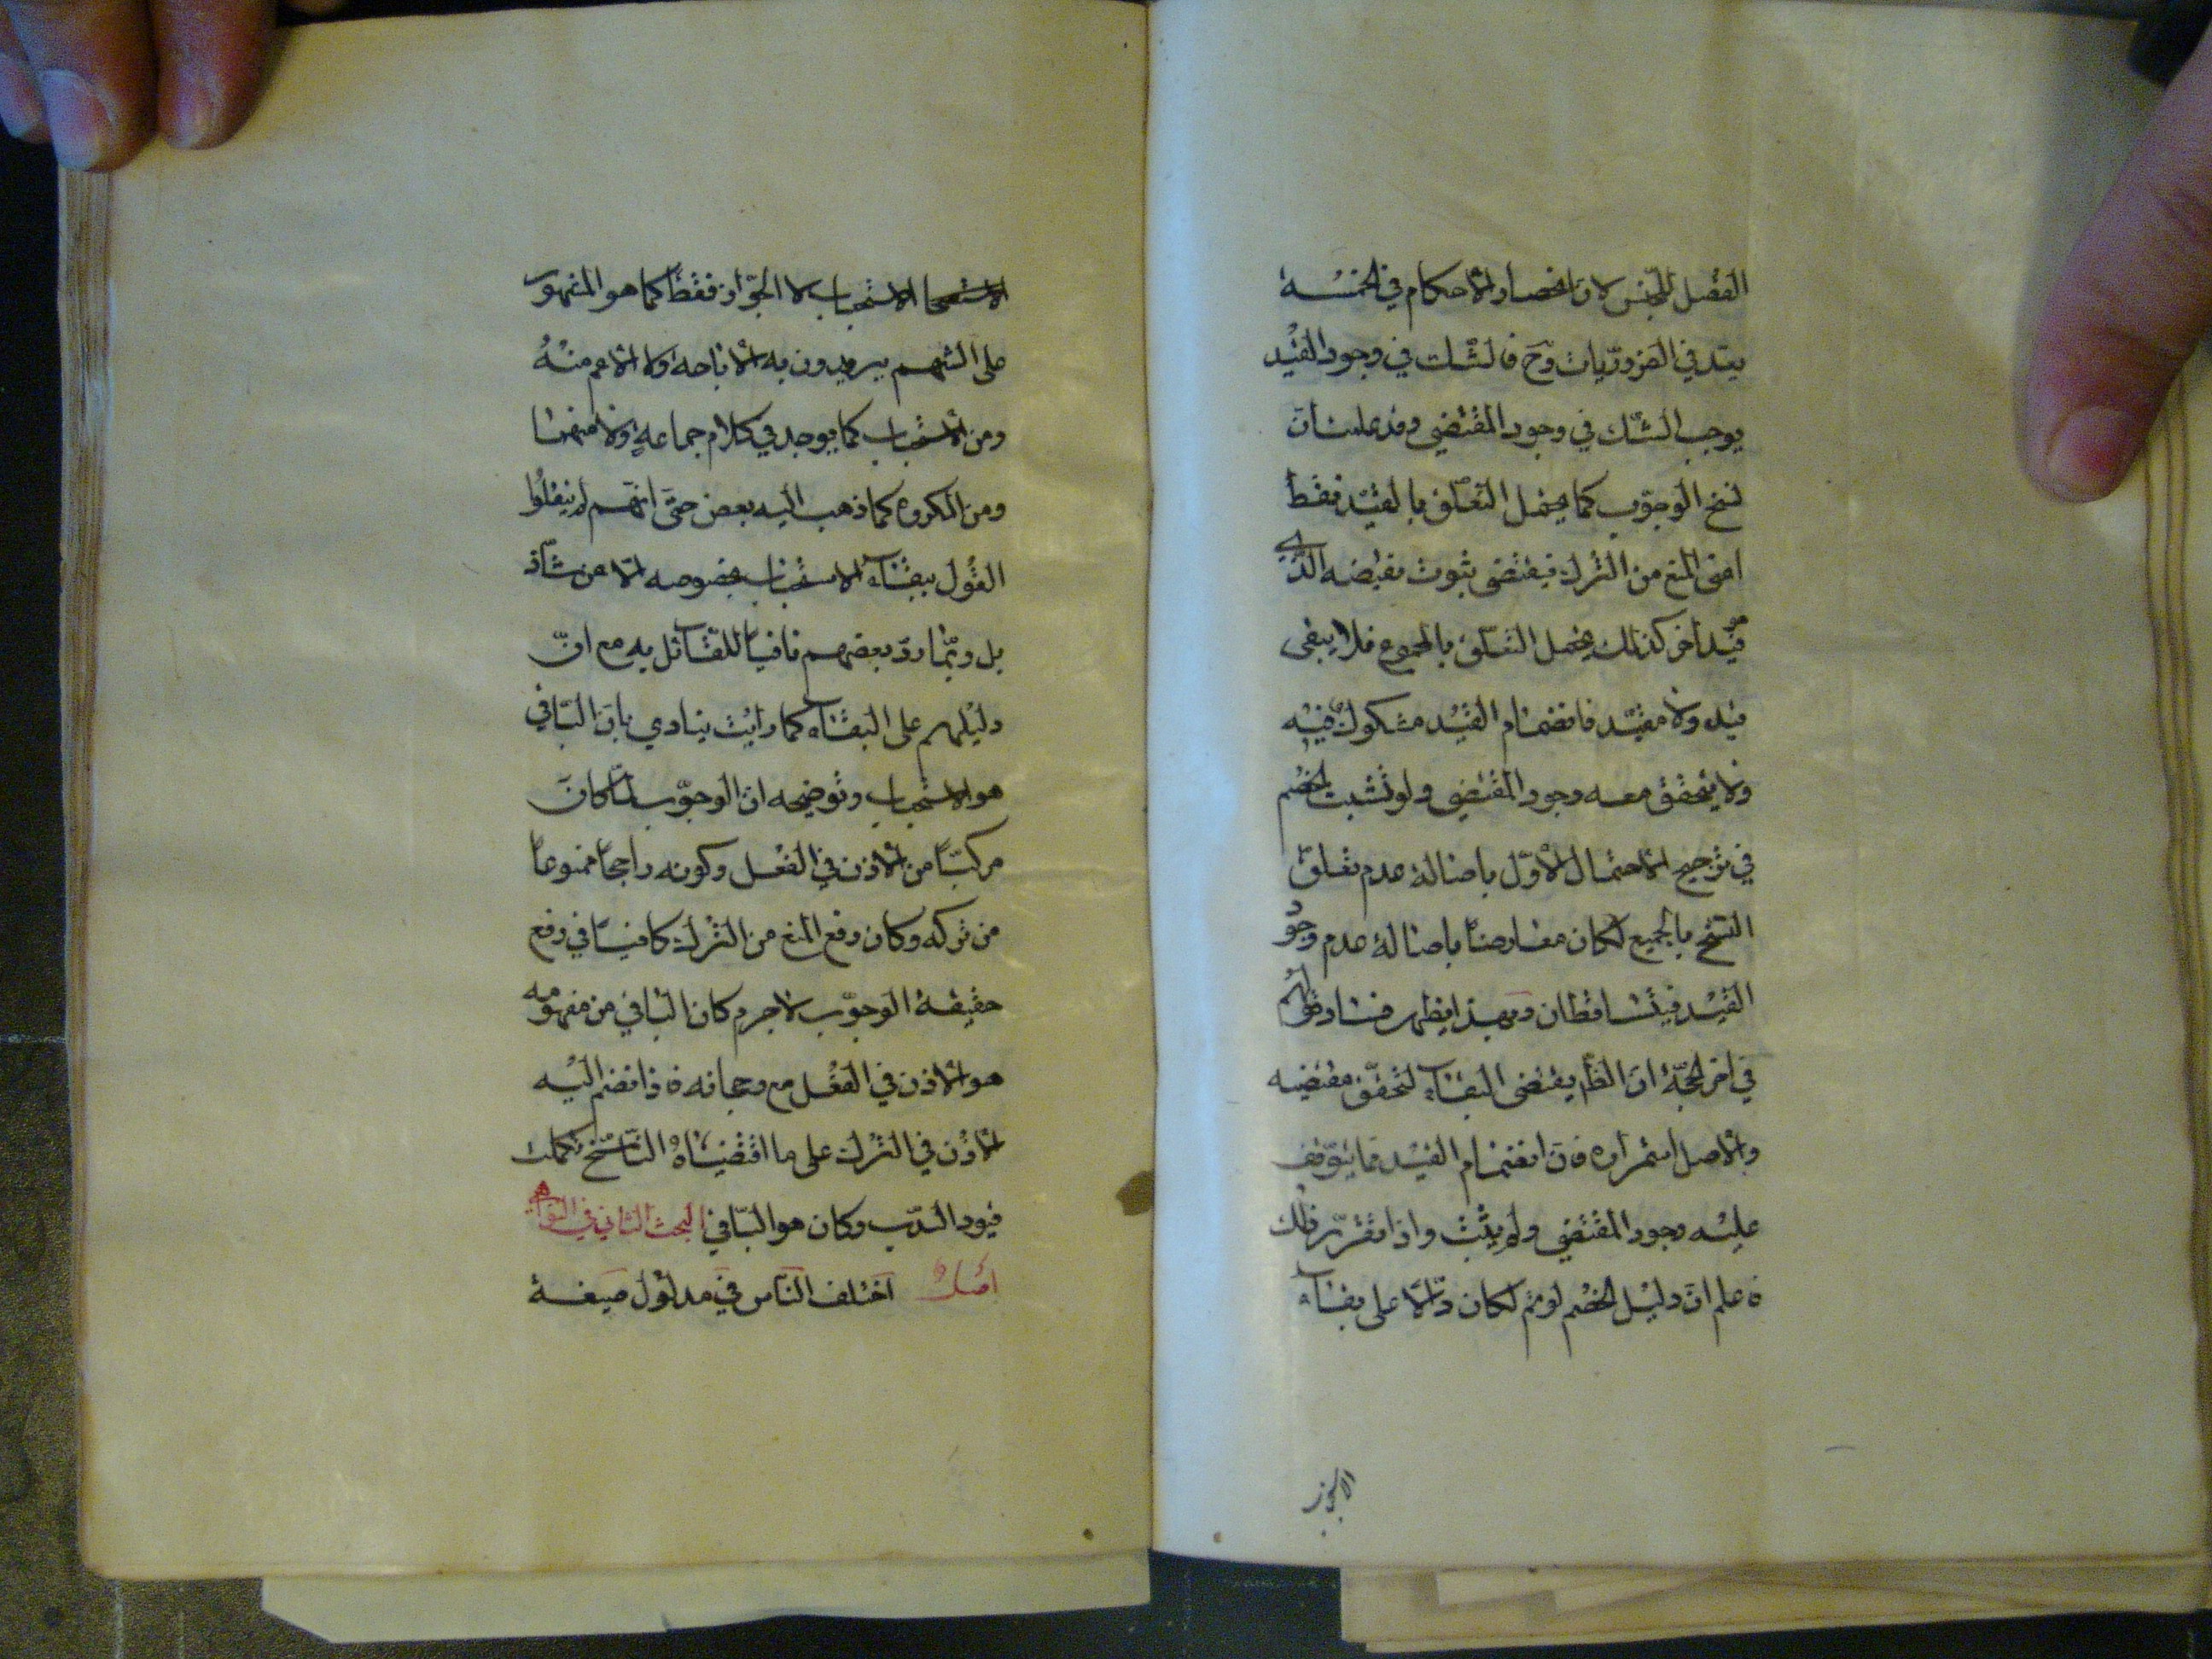 الفصل للجنس لان انحصار الأحكام في الخمسة
يعد في الضروريات وح فالشك في وجود القيد
يوجب الشك في وجود المقتضي وقد علمت ان
نسخ الوجوب كما يحتمل التعلق بالقيد فقط
اعنى المنع من الترك فيقتضى ثبوت نقيضه الذي
هو قيد اخر كذلك يحتمل التعلق بالمجموع فلا يبقى
قيد ولا مقيد فانضمام القيد مشكوك فيه
ولا يتحقق معه وجود المقتضي ولو تشبث الخصم
في ترجيح الاحتمال الأول باصالة عدم تعلق
النسخ بالجميع لكان معارضا باصالة عدم وجود
القيد فيتساقطان وبهذا يظهر فساد قولهم
في اخر الحجة ان الظ يقتضى البقاء لتحقق مقتضيه
والأصل استمراره فان انضمام القيد مما يتوقف
عليه وجود المقتضي ولم يثبت واذا تقرر ذلك
فاعلم ان دليل الخصم لو تم لكان دالا على بقاء
الاستحبا الاستحباب لا الجواز فقط كما هو المشهور
على السنهم يريدون به الأباحة ولا الأعم منه
ومن الأستحباب كما يوجد في كلام جماعة ولا منهما
ومن المكروه كما ذهب اليه بعض حتى انهم لم ينقلوا
القول ببقاء الاستحباب بخصوصه الا عن شاذ
بل وربما رد بعضهم نافيا للقائل به مع ان
دليلهم على البقاء كما رايت ينادي بان الباقي
هو الاستحباب وتوضيحه ان الوجوب لما كان
مركبا من الأذن في الفعل وكونه راجحا ممنوعا
من تركه وكان رفع المنع من الترك كافيا في رفع
حقيقة الوجوب لا جرم كان الباقي من مفهومه
هو الأذن في الفعل مع رجحانه فاذا انضم اليه
الأذن في الترك على ما اقتضاه الناسخ تكملت
قيود الندب وكان هو الباقي البحث الثاني في النواهي
اصل اختلف الناس في مدلول صيغة